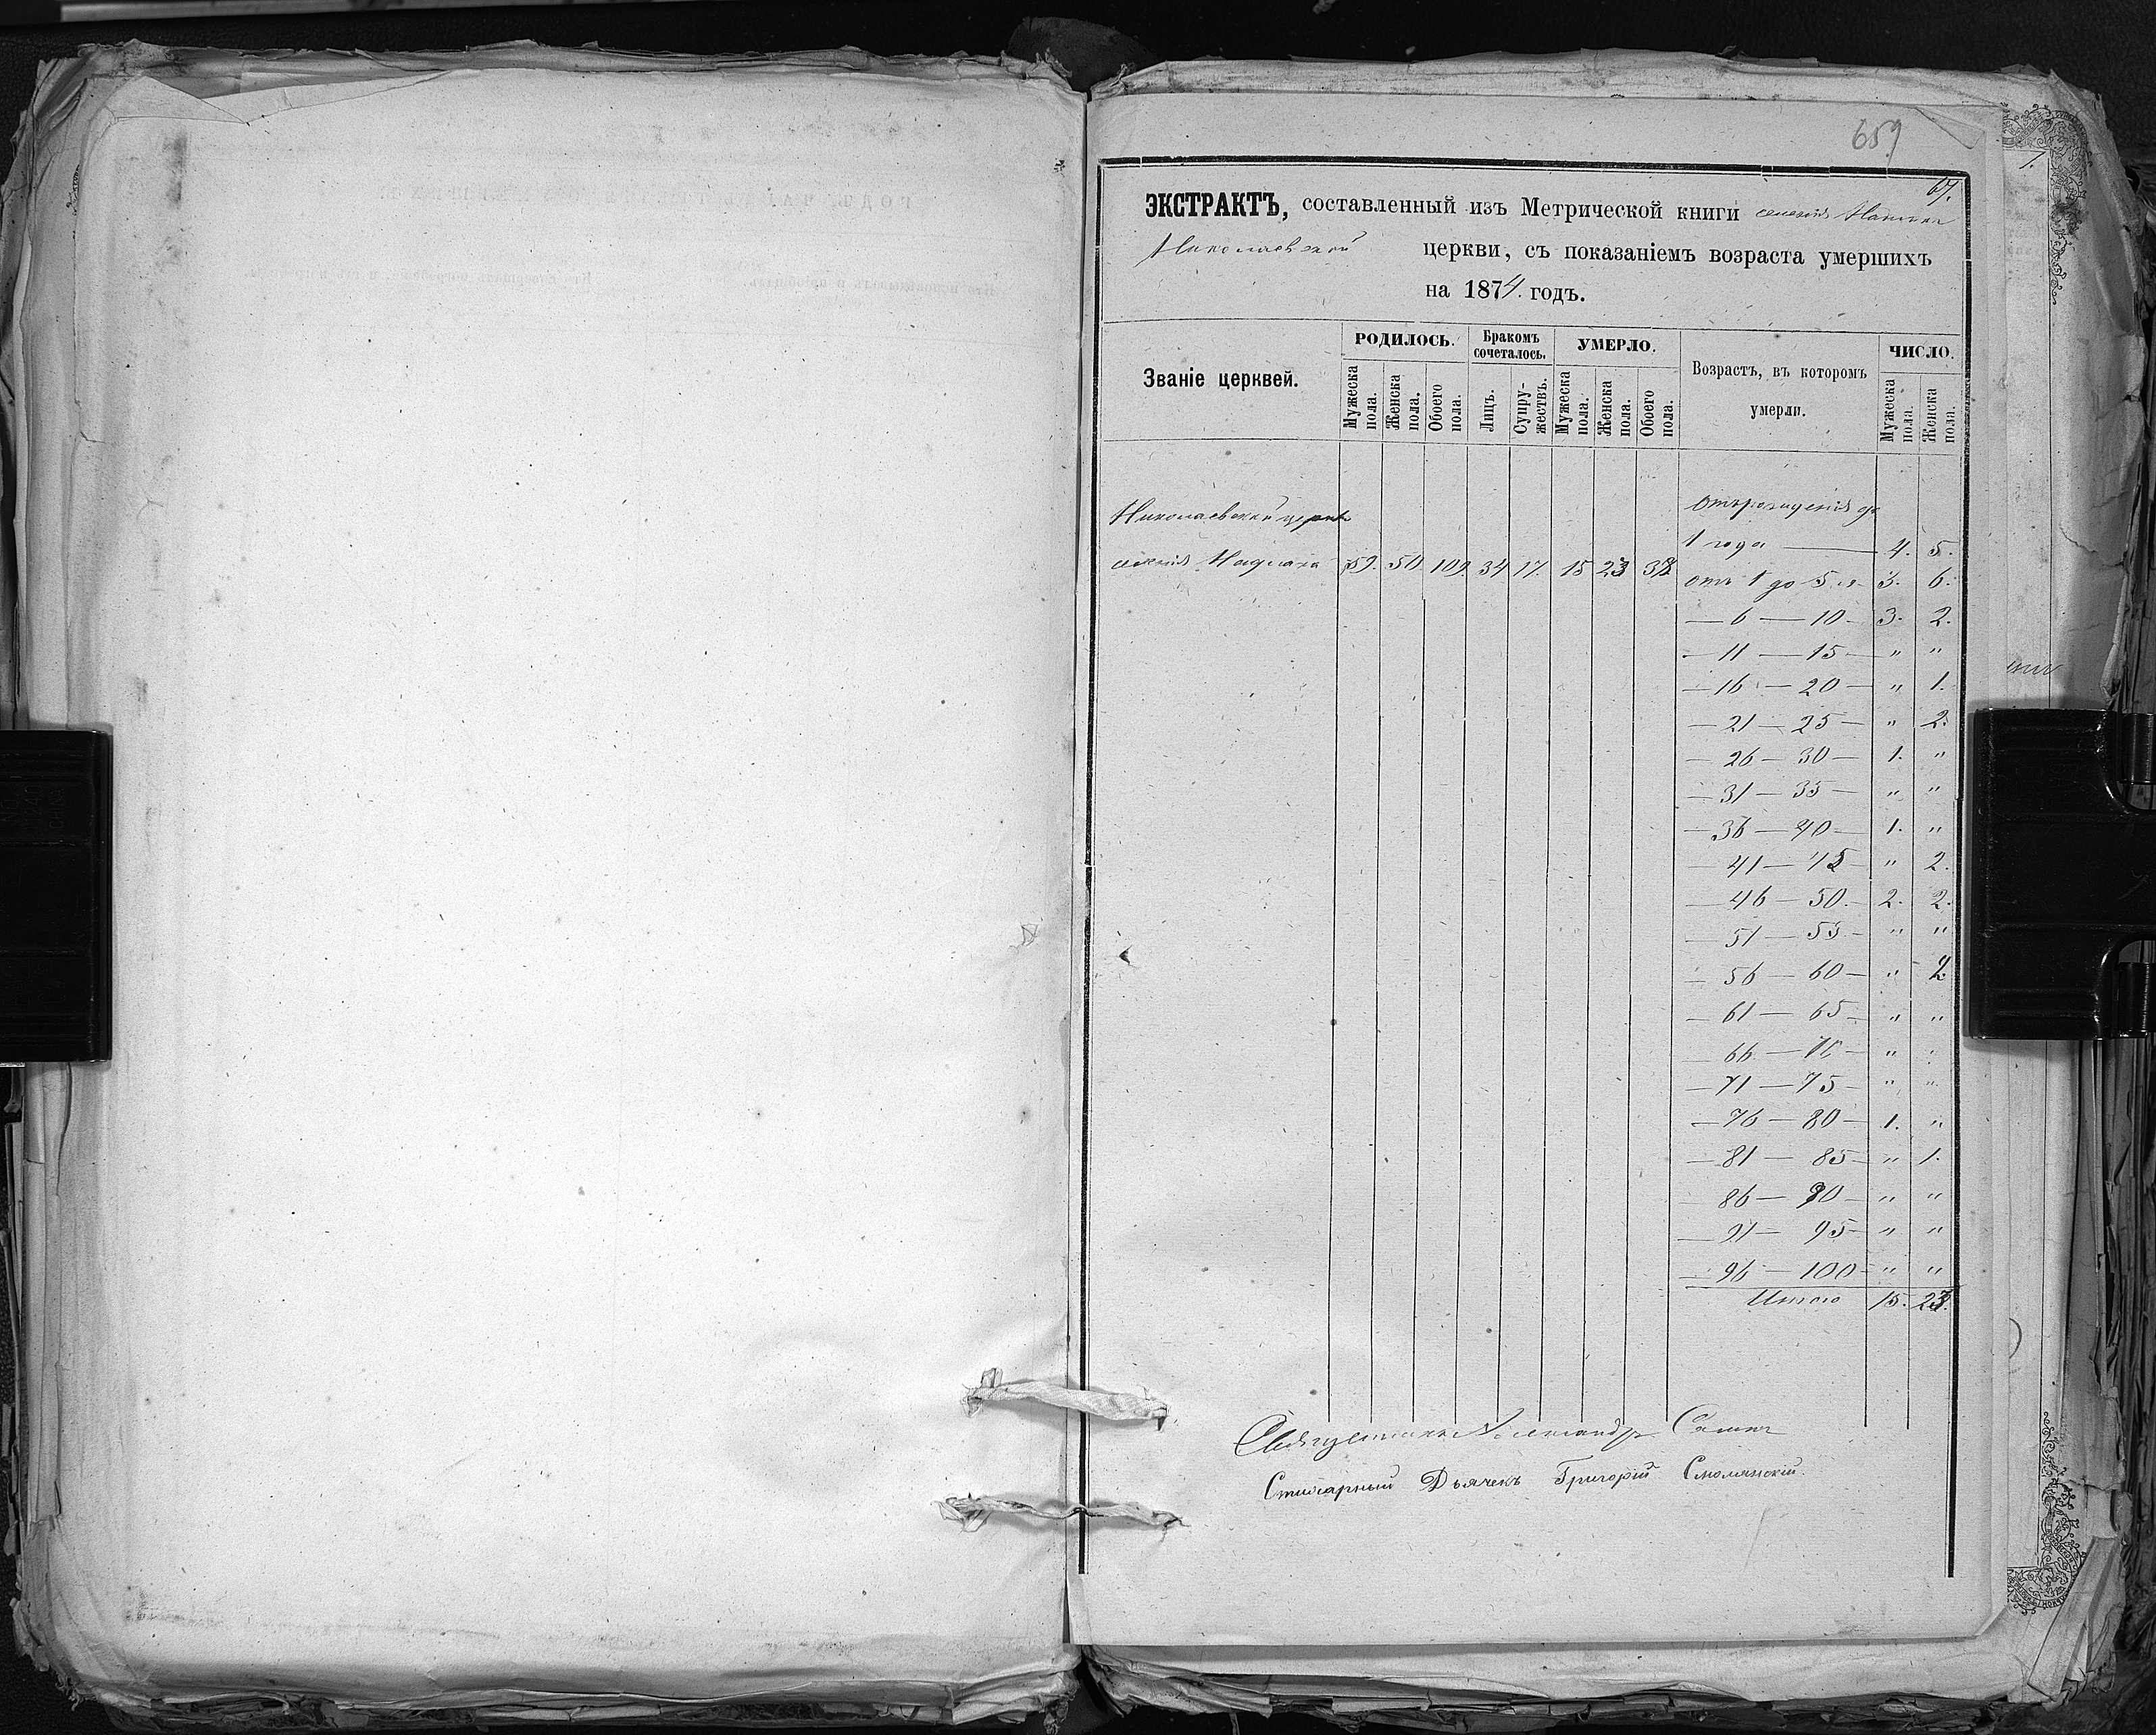 659
67.
ЭКСТРАКТЪ, составленный изъ Метрической книги селенія
Николаевской церкви, съ показаніемъ возраста умершихъ
на 1874. годъ.
Званіе церквей.
РОДИЛОСЬ.
Бракомъ сочеталось.
УМЕРЛО.
Возрастъ, въ которомъ умерли.
ЧИСЛО.
Мужеска пола.
Женска пола.
Обоего пола.
Лицъ.
Супружествъ.
Мужеска пола.
Женска пола.
Обоего пола.
Мужеска пола.
Женска пола.
Николаевской церкви
селенія 59. 50 109. 34 17. 15 23 38
Отъ рожденія до
1 года — 4. 5.
отъ 1 до 5 3. 6.
— 6 — 10 — 3. 2.
— 11 — 15 — " "
— 16 — 20 — " 1.
— 21 — 25 — " 2.
— 26 — 30 — 1. "
— 31 — 35 — " "
— 36 — 40 — 1. "
— 41 — 45 — " 2.
— 46 — 50. — 2. 2.
— 51 — 55 — " "
— 56 — 60 — " 2.
— 61 — 65 — " "
— 66 — 70 — " "
— 71 — 75 — " "
— 76 — 80 — 1. "
— 81 — 85 — " 1.
86 — 90 — " "
— 91 — 95 — " "
— 96 — 100 — " "
Итого 15. 23.
Александръ
Стихарный Дьячекъ Григорій Смолянскій.